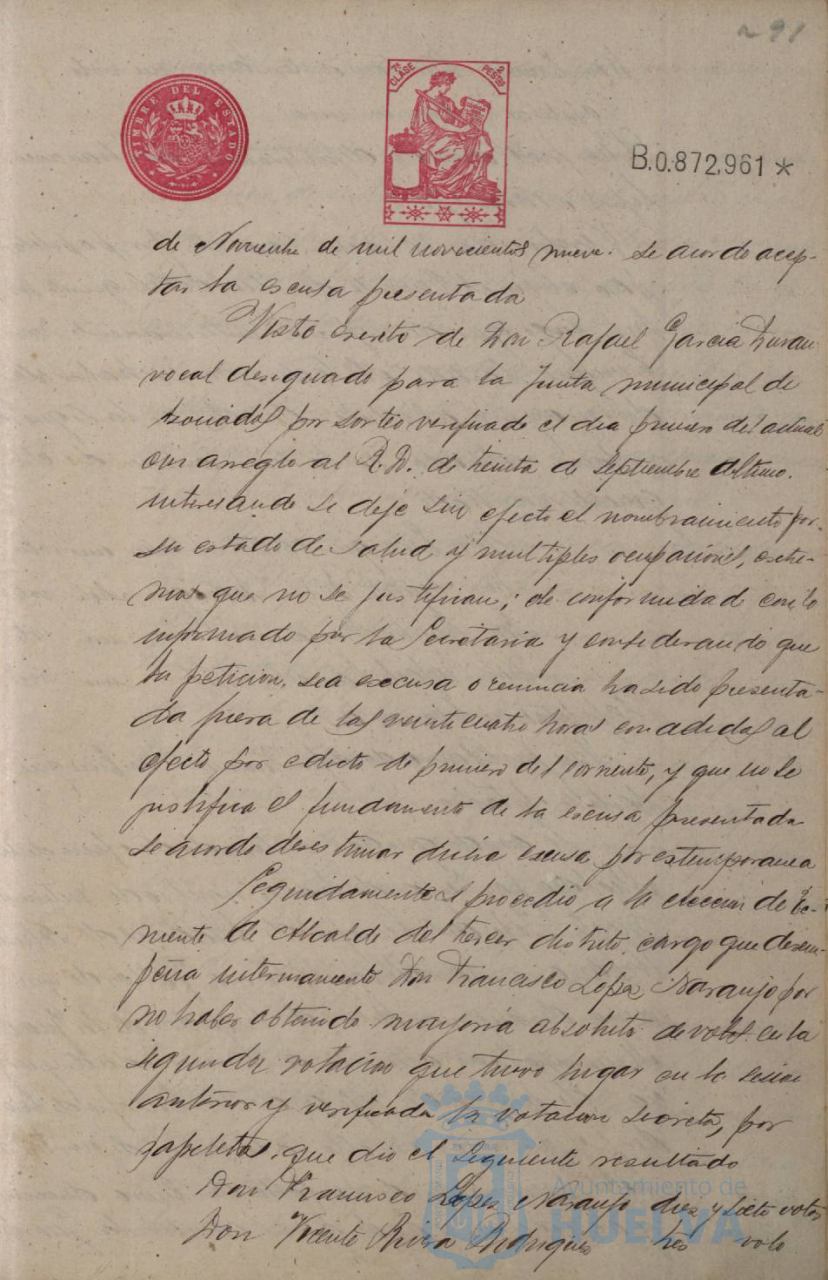 291
TIMBRE DEL ESTADO
7ª CLASE 2 PESETAS
B.0.872,961 *
de Noviembre de mil novecientos nueve. Se acordo acep-
tar la escusa presentada
Visto escrito de Don Rafael Garcia Duran
vocal designado para la Junta municipal de
Asociados por sorteo verificado el dia primero del actual
con arreglo al R.D. de treinta de Septiembre ultimo.
interesando se deje sin efecto el nombramiento por
su estado de salud y multiples ocupaciones, extre-
mos que no se justifican; de conformidad con lo
informado por la Secretaria y considerando que
la peticion, sea excusa o renuncia ha sido presenta-
da fuera de las veinticuatro horas concedidas al
efecto por edicto de primero del corriente, y que no se
justifica el fundamento de la escusa presentada
se acordo desestimar dicha escusa por estemporanea
Seguidamente se procedio a la eleccion de Te-
niente de Alcalde del tercer distrito, cargo que desem-
peña interinamente Don Francisco Lopez Naranjo por
no haber obtenido mayoria absoluta de votos en la
segunda votacion que tuvo lugar en la sesion
anterior y verificada la votacion secreta, por
papeletas, que dio el siguiente resultado
Don Francisco Lopez Naranjo diez y siete votos
Don Vicente Rivera Rodriguez tres voto
Ayuntamiento de
HUELVA